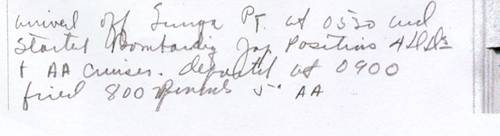 arrived off Lunga Pt. at 0530 and
Started Bombarding Jap Positions 4 DDs
+ AA Cruiser. departed at 0900
fired 800 Rounds 5" AA